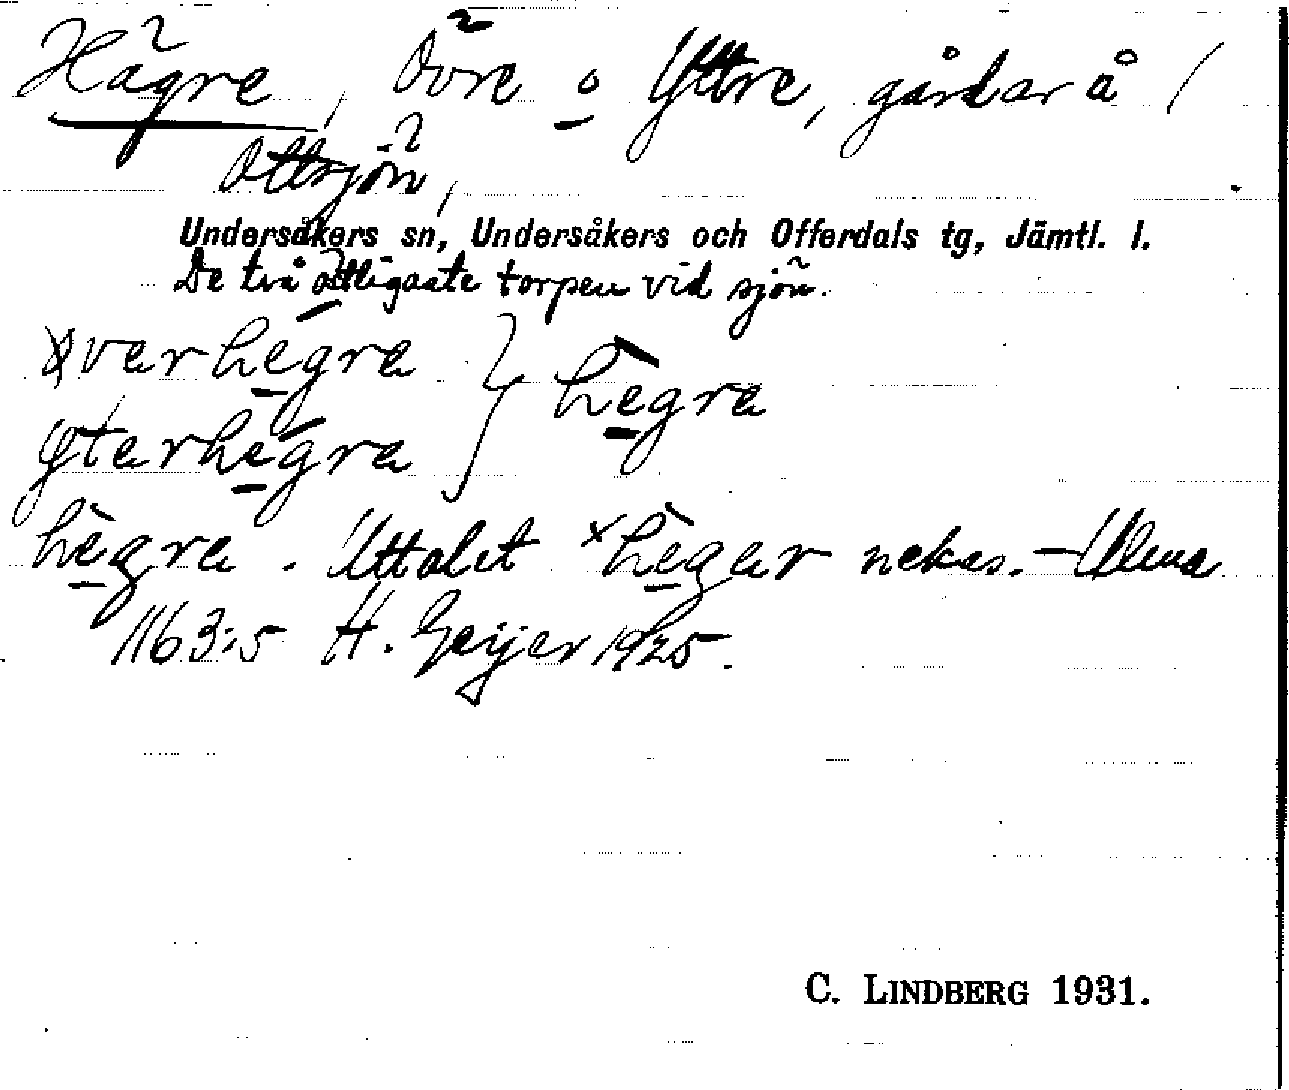 Hägre, Övre o Yttre, gårdar å
Ottsjön,
Undersåkers sn, Undersåkers och Offerdals tg, Jämtl. l.
De två östligaste torpen vid sjön.
øverhegra } hègra
yterhegra
hègra. Uttalet ˣhègar nekas. –
1163:5 H. Geijer 1925.
C. LINDBERG 1931.